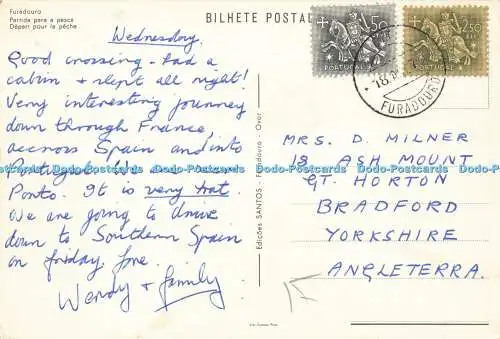 Furadouro
Partida para a pesca
Départ pour la pêche
BILHETE POSTAL
Wednesday.
Good crossing - had a
cabin & slept all night!
Very interesting journey
down through France,
accross Spain and into
Portugal. We are
Porto. It is very hot.
We are going to drive
down to Southern Spain
on friday. Love.
Wendy & family
Edições SANTOS - Furadouro - Ovar
50
PORTUGAL
2$50
PORTUGAL
18
FURADOURO
MRS. D MILNER
18 ASH MOUNT
GT. HORTON
BRADFORD
YORKSHIRE
ANGLETERRA.
Dodo-Postcards Dodo-Postcards Dodo-Postcards Dodo-Postcards